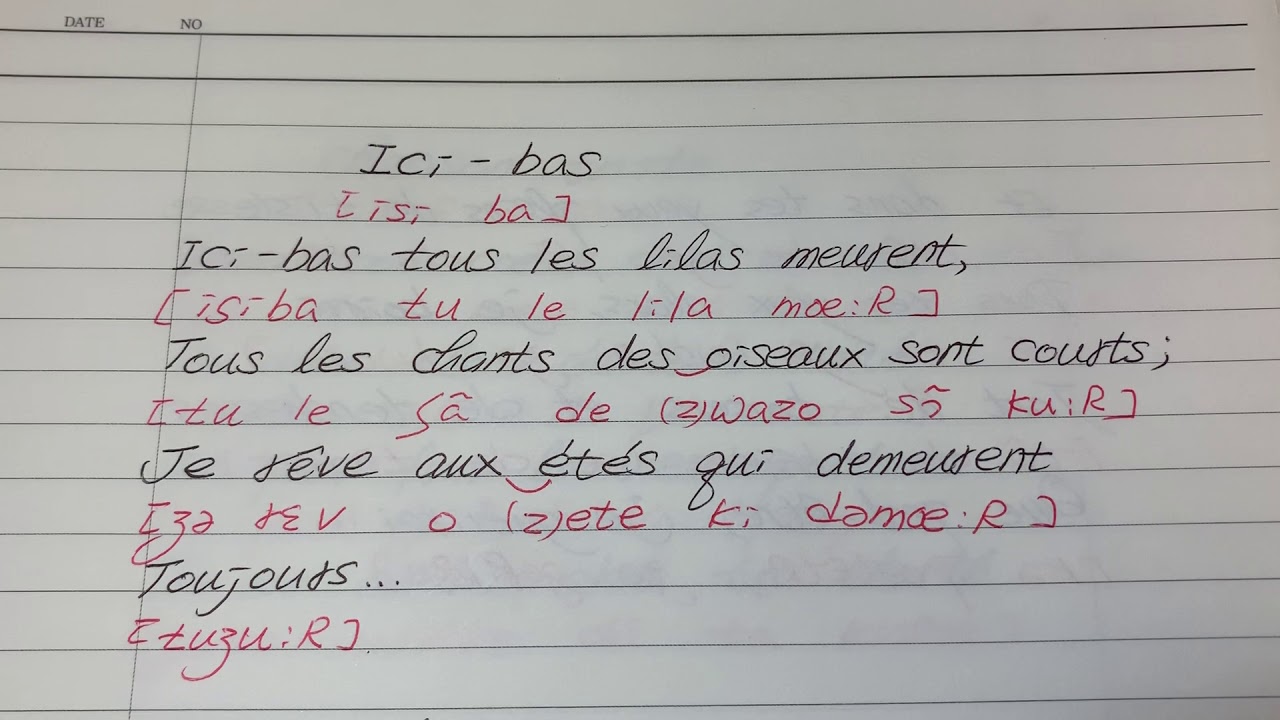 DATE NO
Ici-bas
[isi ba]
Ici-bas tous les lilas meurent,
[isiba tu le lila mœ:R]
Tous les chants des oiseaux sont courts;
[tu le ʃã de (z)wazo sɔ̃ ku:R]
Je rêve aux étés qui demeurent
[ʒə rɛv o (z)ete ki dəmœ:R]
Toujours...
[tuʒu:R]